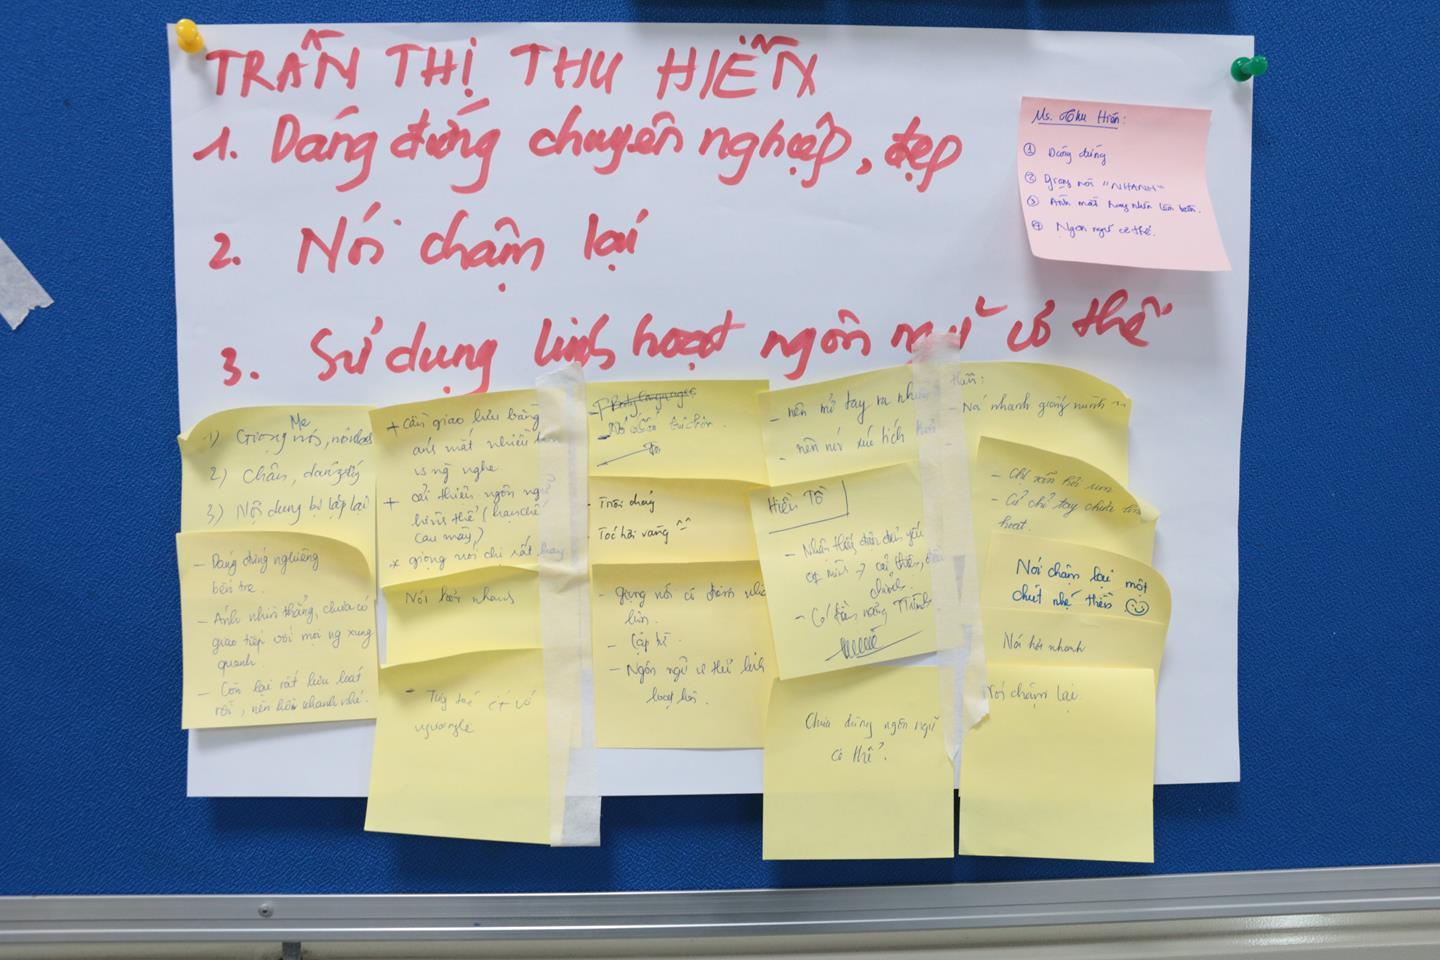 TRẦN THỊ THU HIỀN
1. Dáng đứng chuyên nghiệp, đẹp
2. Nói chậm lại
3. Sử dụng linh hoạt ngôn ngữ cơ thể
Ms. Thu Hiền:
① Dáng đứng
② Giọng nói "NHANH"
③ Ánh mắt hay nhìn lên trên.
④ Ngôn ngữ cơ thể.
1) Giọng nói,
2) Chân, dáng
3) Nội dung bị lặp lại
- Dáng đứng nghiêng
bên
- Ánh nhìn thẳng, chưa có
giao tiếp với mọi ng xung
quanh.
- Còn lại rất lưu loát
rồi, nên hơi nhanh nhé.
+ Cần giao lưu bằng
ánh mắt nhiều hơn
vs ng nghe.
+ cải thiện ngôn ngữ
hình thể (hạn chế
cau mày)
* giọng nói chị rất hay
Nói hơi nhanh
- Tương tác ít với
người nghe
- Trôi chảy
- Tóc hơi vàng ^^
- Giọng nói có điểm nhấn
hơn.
- Ngôn ngữ cơ thể linh
hoạt hơn.
- nên mở tay ra nhiều
- nên nói súc tích hơn
Hiền Tồ
- Nhận thấy điểm yếu
của mình → cải thiện,
chỉnh.
Chưa dùng ngôn ngữ
cơ thể.
- Nói nhanh giống mình ~
- Chị vẫn hơi run
- Cử chỉ tay chưa linh
hoạt.
Nói chậm lại một
chút nhé Hiền ☺
Nói hơi nhanh
Nói chậm lại